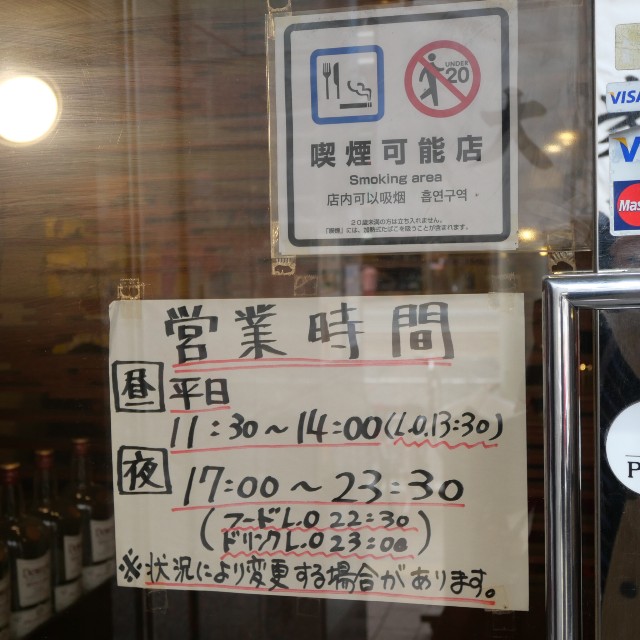 UNDER
20
喫煙可能店
Smoking area
店内可以吸烟 흡연구역
20歳未満の方は立ち入れません。
「喫煙」には、加熱式たばこを吸うことが含まれます。
VISA
営業時間
昼 平日
11:30~14:00(L.O.13:30)
夜
17:00~23:30
(フードL.O 22:30
ドリンクL.O 23:00)
※状況により変更する場合があります。